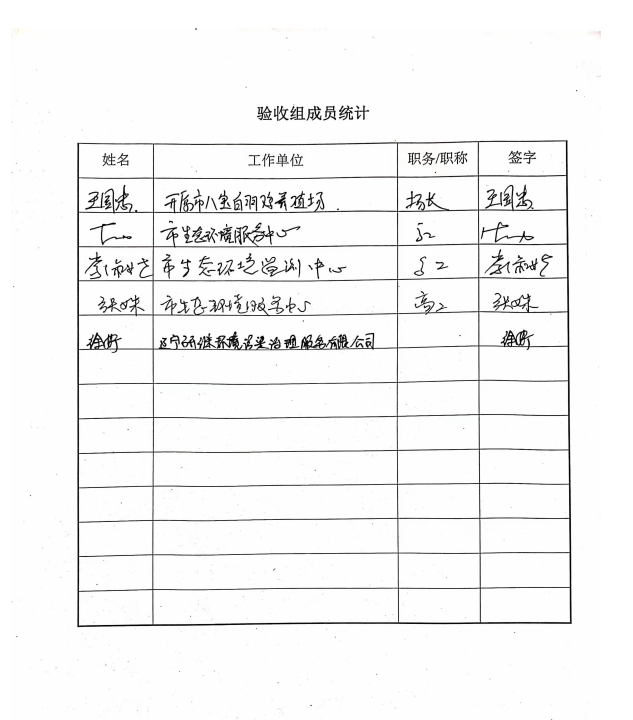 验收组成员统计
姓名 工作单位 职务/职称 签字
王国忠. 开原市八宝白羽鸡养殖场. 场长 王国忠
市生态环境服务中心 高工
市生态环境监测中心 高工
张 市生态环境服务中心 高工 张
徐 辽宁 环境污染治理服务有限公司 徐